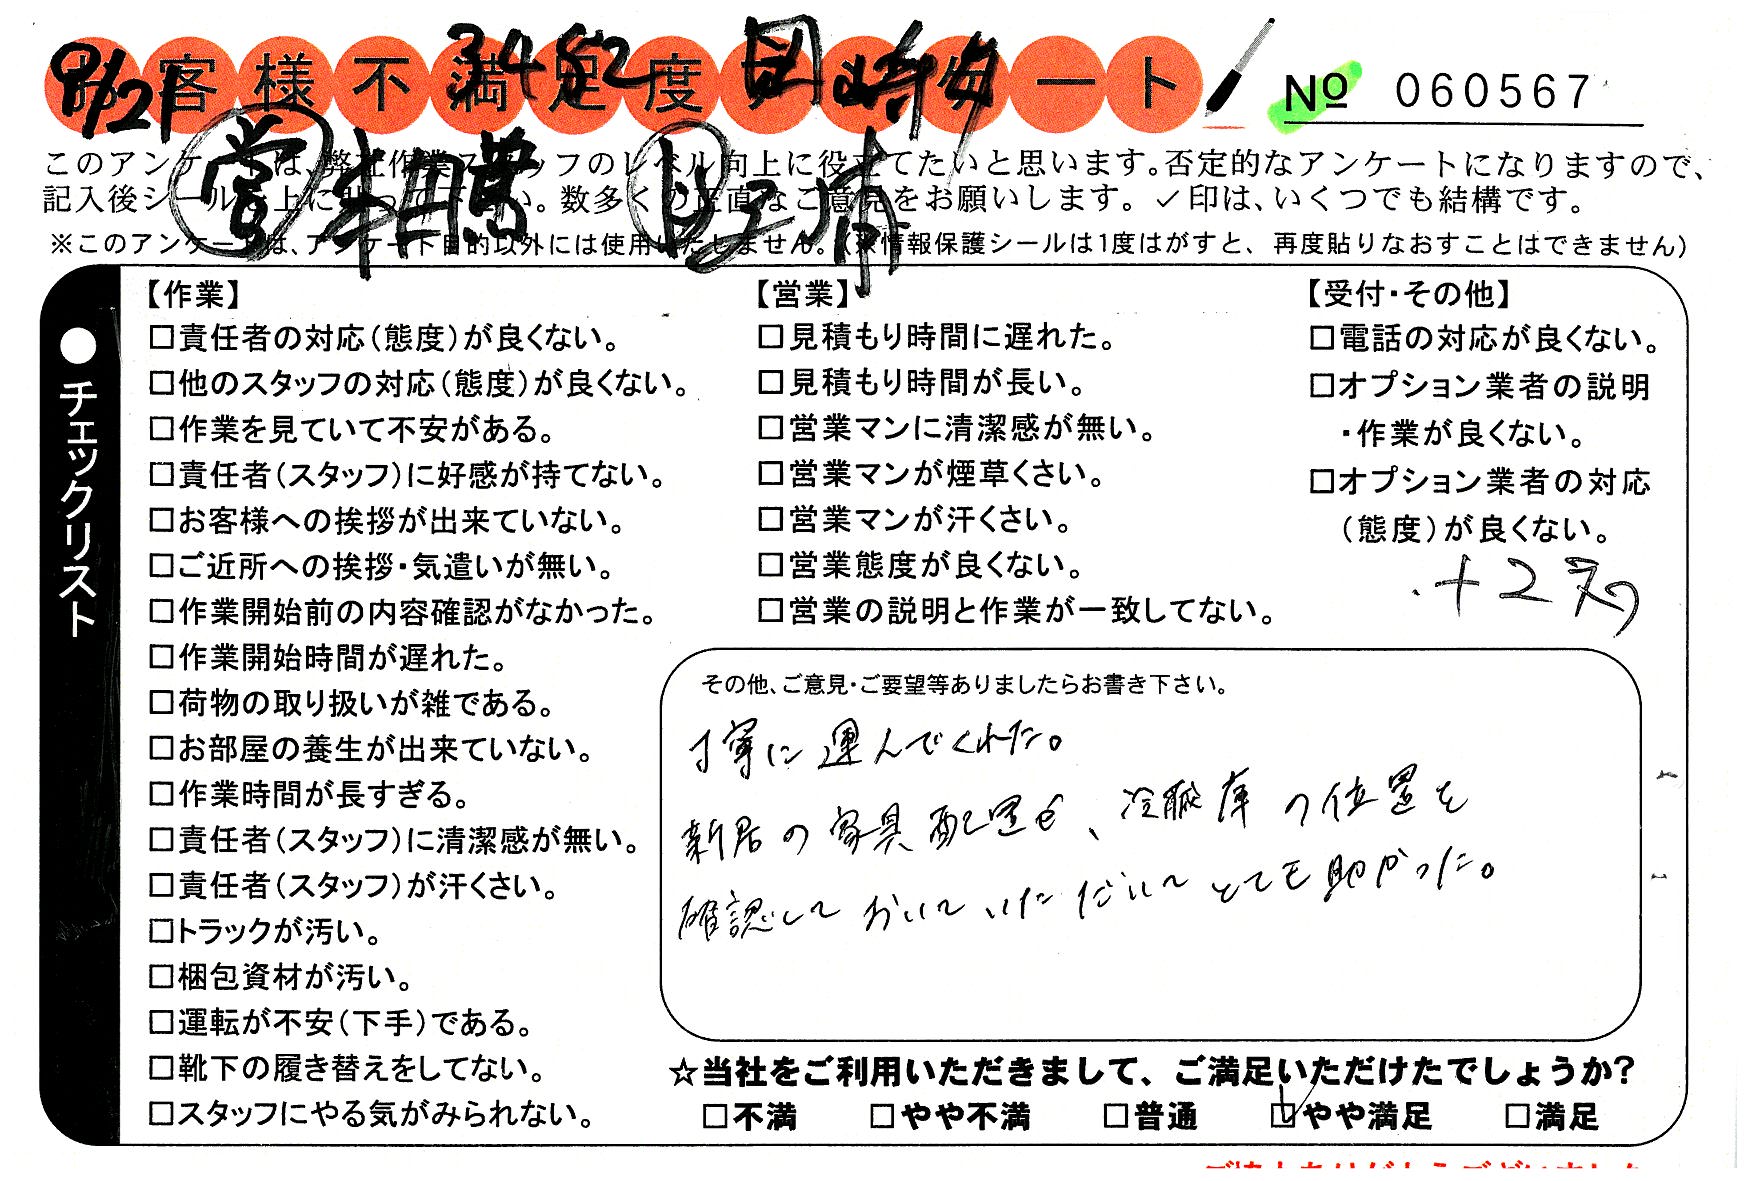 お客様不満足度アンケート
№ 060567
9/21 3452 岡崎
営 相葉
このアンケートは、弊社作業スタッフのレベル向上に役立てたいと思います。否定的なアンケートになりますので、
記入後シールを上に貼って下さい。数多くの正直なご意見をお願いします。✓印は、いくつでも結構です。
※このアンケートは、アンケート目的以外には使用いたしません。(※情報保護シールは1度はがすと、再度貼りなおすことはできません)
●チェックリスト
【作業】
□責任者の対応(態度)が良くない。
□他のスタッフの対応(態度)が良くない。
□作業を見ていて不安がある。
□責任者(スタッフ)に好感が持てない。
□お客様への挨拶が出来ていない。
□ご近所への挨拶・気遣いが無い。
□作業開始前の内容確認がなかった。
□作業開始時間が遅れた。
□荷物の取り扱いが雑である。
□お部屋の養生が出来ていない。
□作業時間が長すぎる。
□責任者(スタッフ)に清潔感が無い。
□責任者(スタッフ)が汗くさい。
□トラックが汚い。
□梱包資材が汚い。
□運転が不安(下手)である。
□靴下の履き替えをしてない。
□スタッフにやる気がみられない。
【営業】
□見積もり時間に遅れた。
□見積もり時間が長い。
□営業マンに清潔感が無い。
□営業マンが煙草くさい。
□営業マンが汗くさい。
□営業態度が良くない。
□営業の説明と作業が一致してない。
【受付・その他】
□電話の対応が良くない。
□オプション業者の説明
・作業が良くない。
□オプション業者の対応
(態度)が良くない。
+2
その他、ご意見・ご要望等ありましたらお書き下さい。
丁寧に運んでくれた。
新居の家具配置も、冷蔵庫の位置を
確認しておいていただいてとても助かった。
☆当社をご利用いただきまして、ご満足いただけたでしょうか?
□不満 □やや不満 □普通 ☑やや満足 □満足